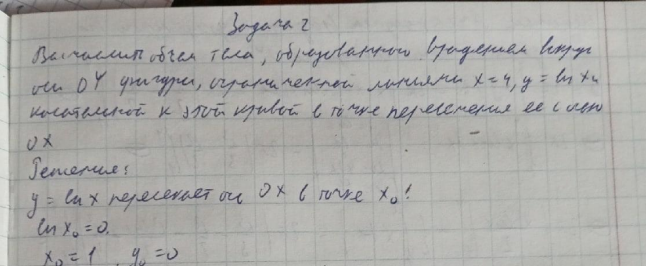 Задача 2
Вычислить объем тела, образованного вращением вокруг
оси OY фигуры, ограниченной линиями x=4, y=ln x и
касательной к этой кривой в точке пересечения ее с осью
OX
Решение:
y=ln x пересекает ось OX в точке x₀:
ln x₀=0.
x₀=1, y₀=0